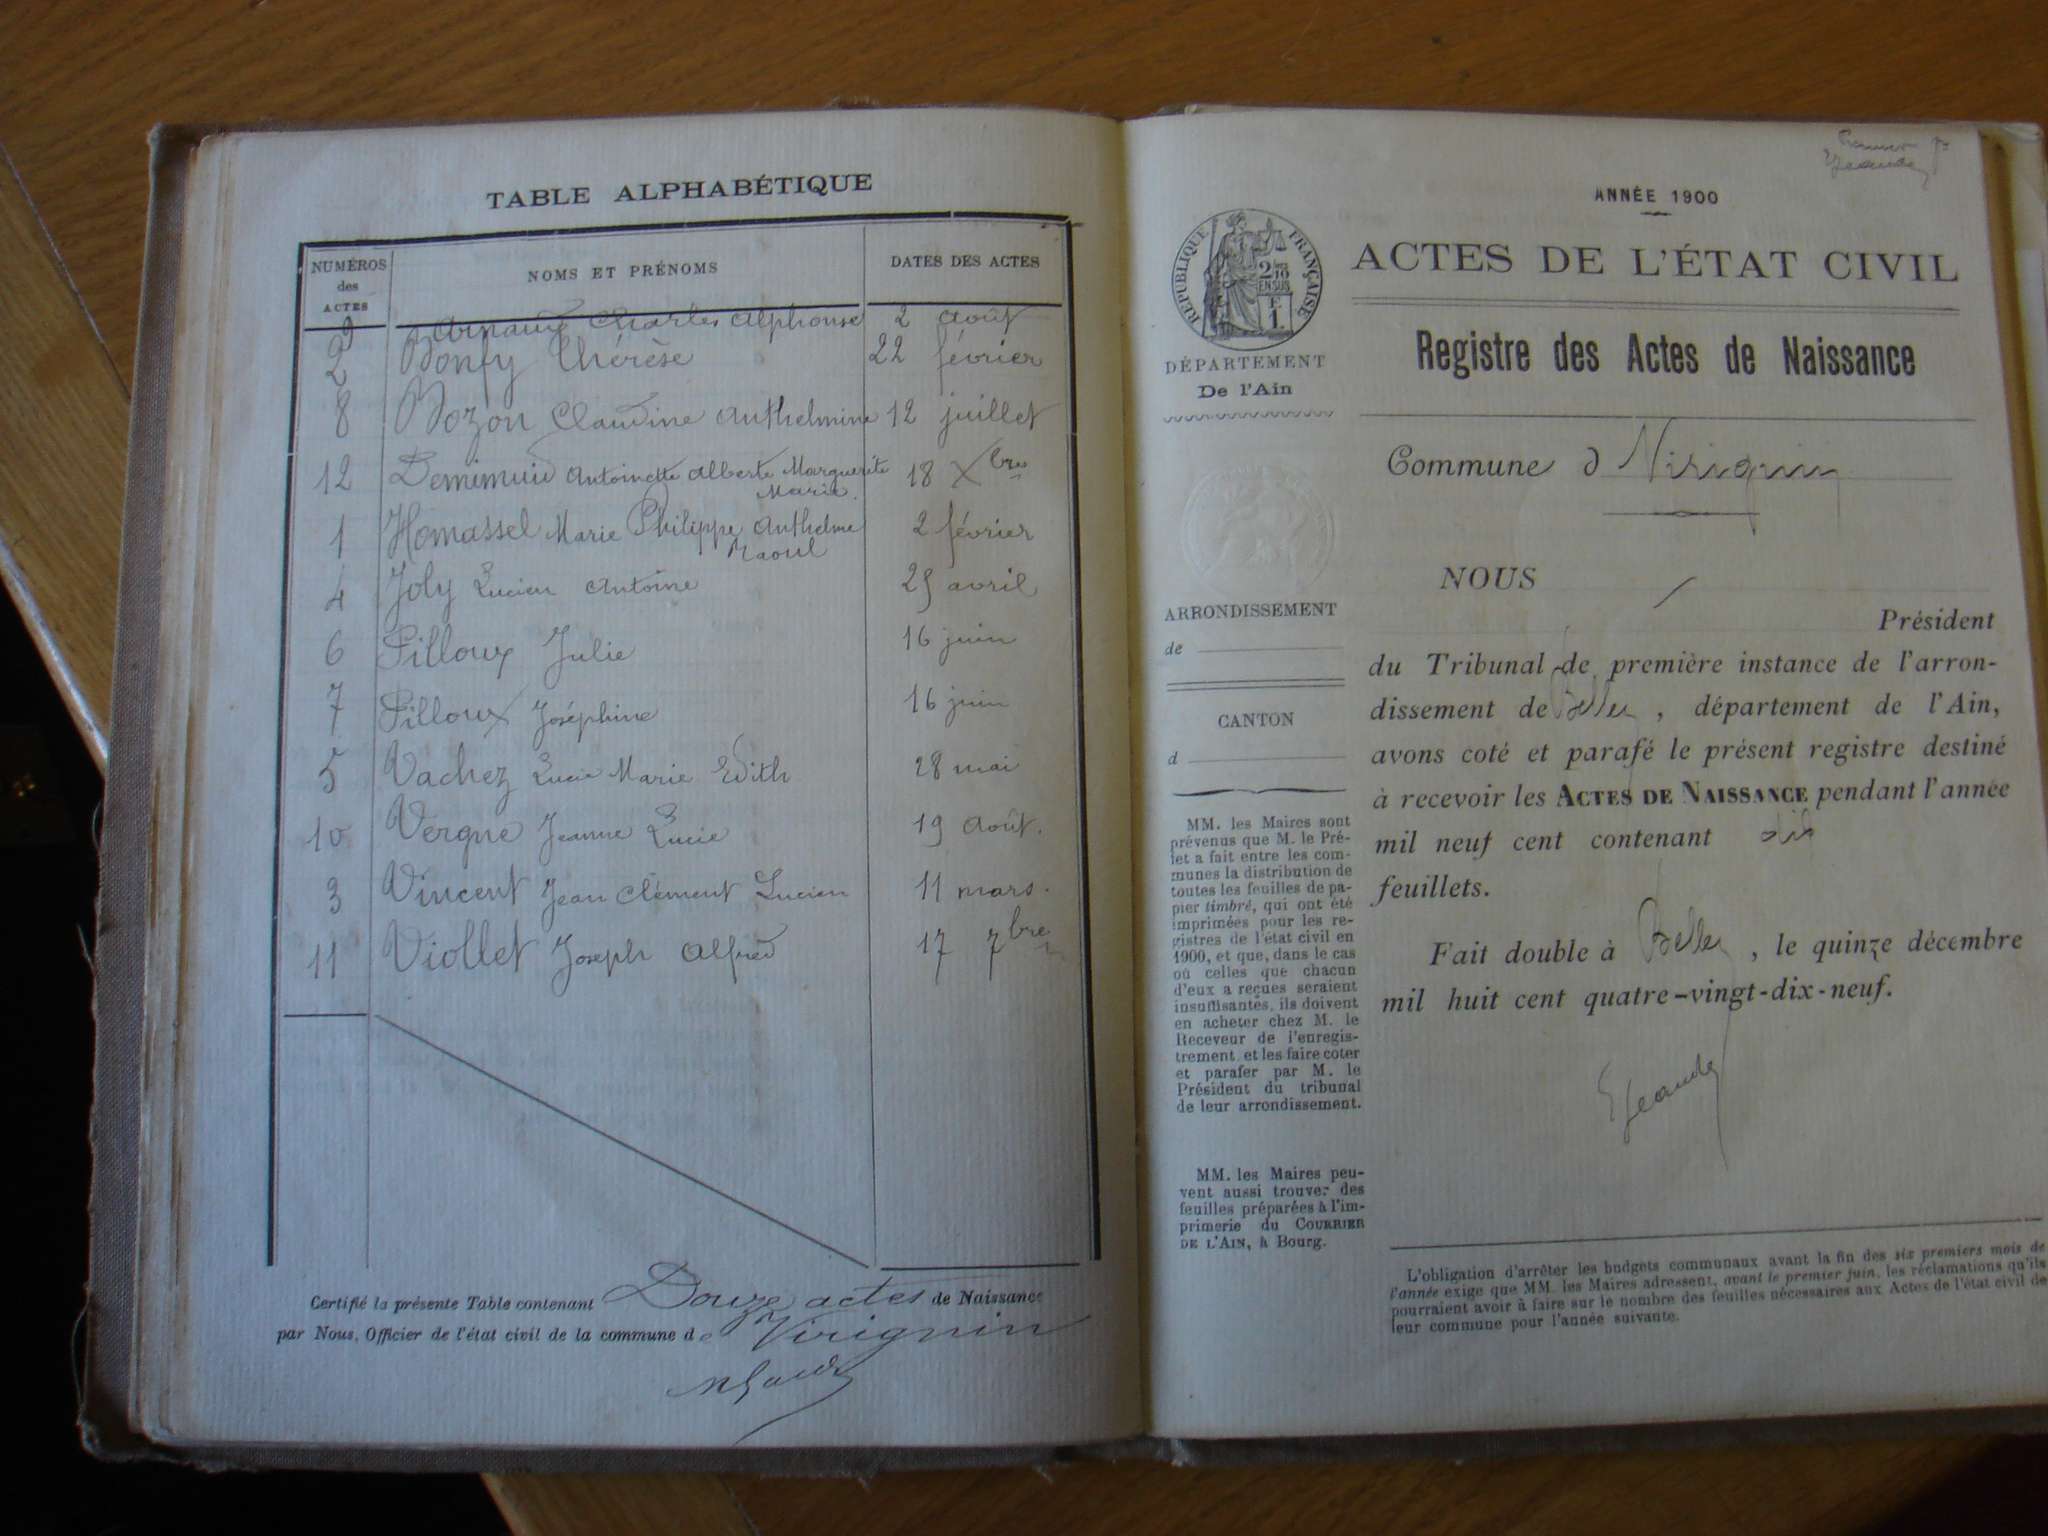 TABLE ALPHABÉTIQUE
NUMÉROS des ACTES NOMS ET PRÉNOMS DATES DES ACTES
9 Arnaux Charles Alphonse 2 Août
2 Bonfy Thérèse 22 février
8 Bozon Claudine Anthelmine 12 juillet
12 Demimuid Antoinette Alberte Marguerite 18 Xbre
Marie.
1 Homassel Marie Philippe Anthelme 2 février
Raoul
4 Joly Lucien Antoine 25 avril
6 Pilloux Julie 16 juin
7 Pilloux Joséphine 16 juin
5 Vachez Lucie Marie Edith 28 mai
10 Vergne Jeanne Lucie 19 Août.
3 Vincent Jean Clément Lucien 11 mars.
11 Viollet Joseph Alfred 17 7bre
Certifié la présente Table contenant Douze actes de Naissance
par Nous, Officier de l'état civil de la commune de Virignin
ANNÉE 1900
RÉPUBLIQUE FRANÇAISE
2/10 EN SUS
ACTES DE L'ÉTAT CIVIL
DÉPARTEMENT
De l'Ain
Registre des Actes de Naissance
Commune d Virignin
ARRONDISSEMENT
de
CANTON
d
MM. les Maires sont
prévenus que M. le Pré-
fet a fait entre les com-
munes la distribution de
toutes les feuilles de pa-
pier timbré, qui ont été
imprimées pour les re-
gistres de l'état civil en
1900, et que, dans le cas
où celles que chacun
d'eux a reçues seraient
insuffisantes, ils doivent
en acheter chez M. le
Receveur de l'enregis-
trement et les faire coter
et parafer par M. le
Président du tribunal
de leur arrondissement.
MM. les Maires peu-
vent aussi trouver des
feuilles préparées à l'im-
primerie du COURRIER
DE L'AIN, à Bourg.
NOUS
Président
du Tribunal de première instance de l'arron-
dissement de Belley, département de l'Ain,
avons coté et parafé le présent registre destiné
à recevoir les ACTES DE NAISSANCE pendant l'année
mil neuf cent contenant dix
feuillets.
Fait double à Belley, le quinze décembre
mil huit cent quatre-vingt-dix-neuf.
L'obligation d'arrêter les budgets communaux avant la fin des six premiers mois de
l'année exige que MM. les Maires adressent, avant le premier juin, les réclamations qu'ils
pourraient avoir à faire sur le nombre des feuilles nécessaires aux Actes de l'état civil de
leur commune pour l'année suivante.